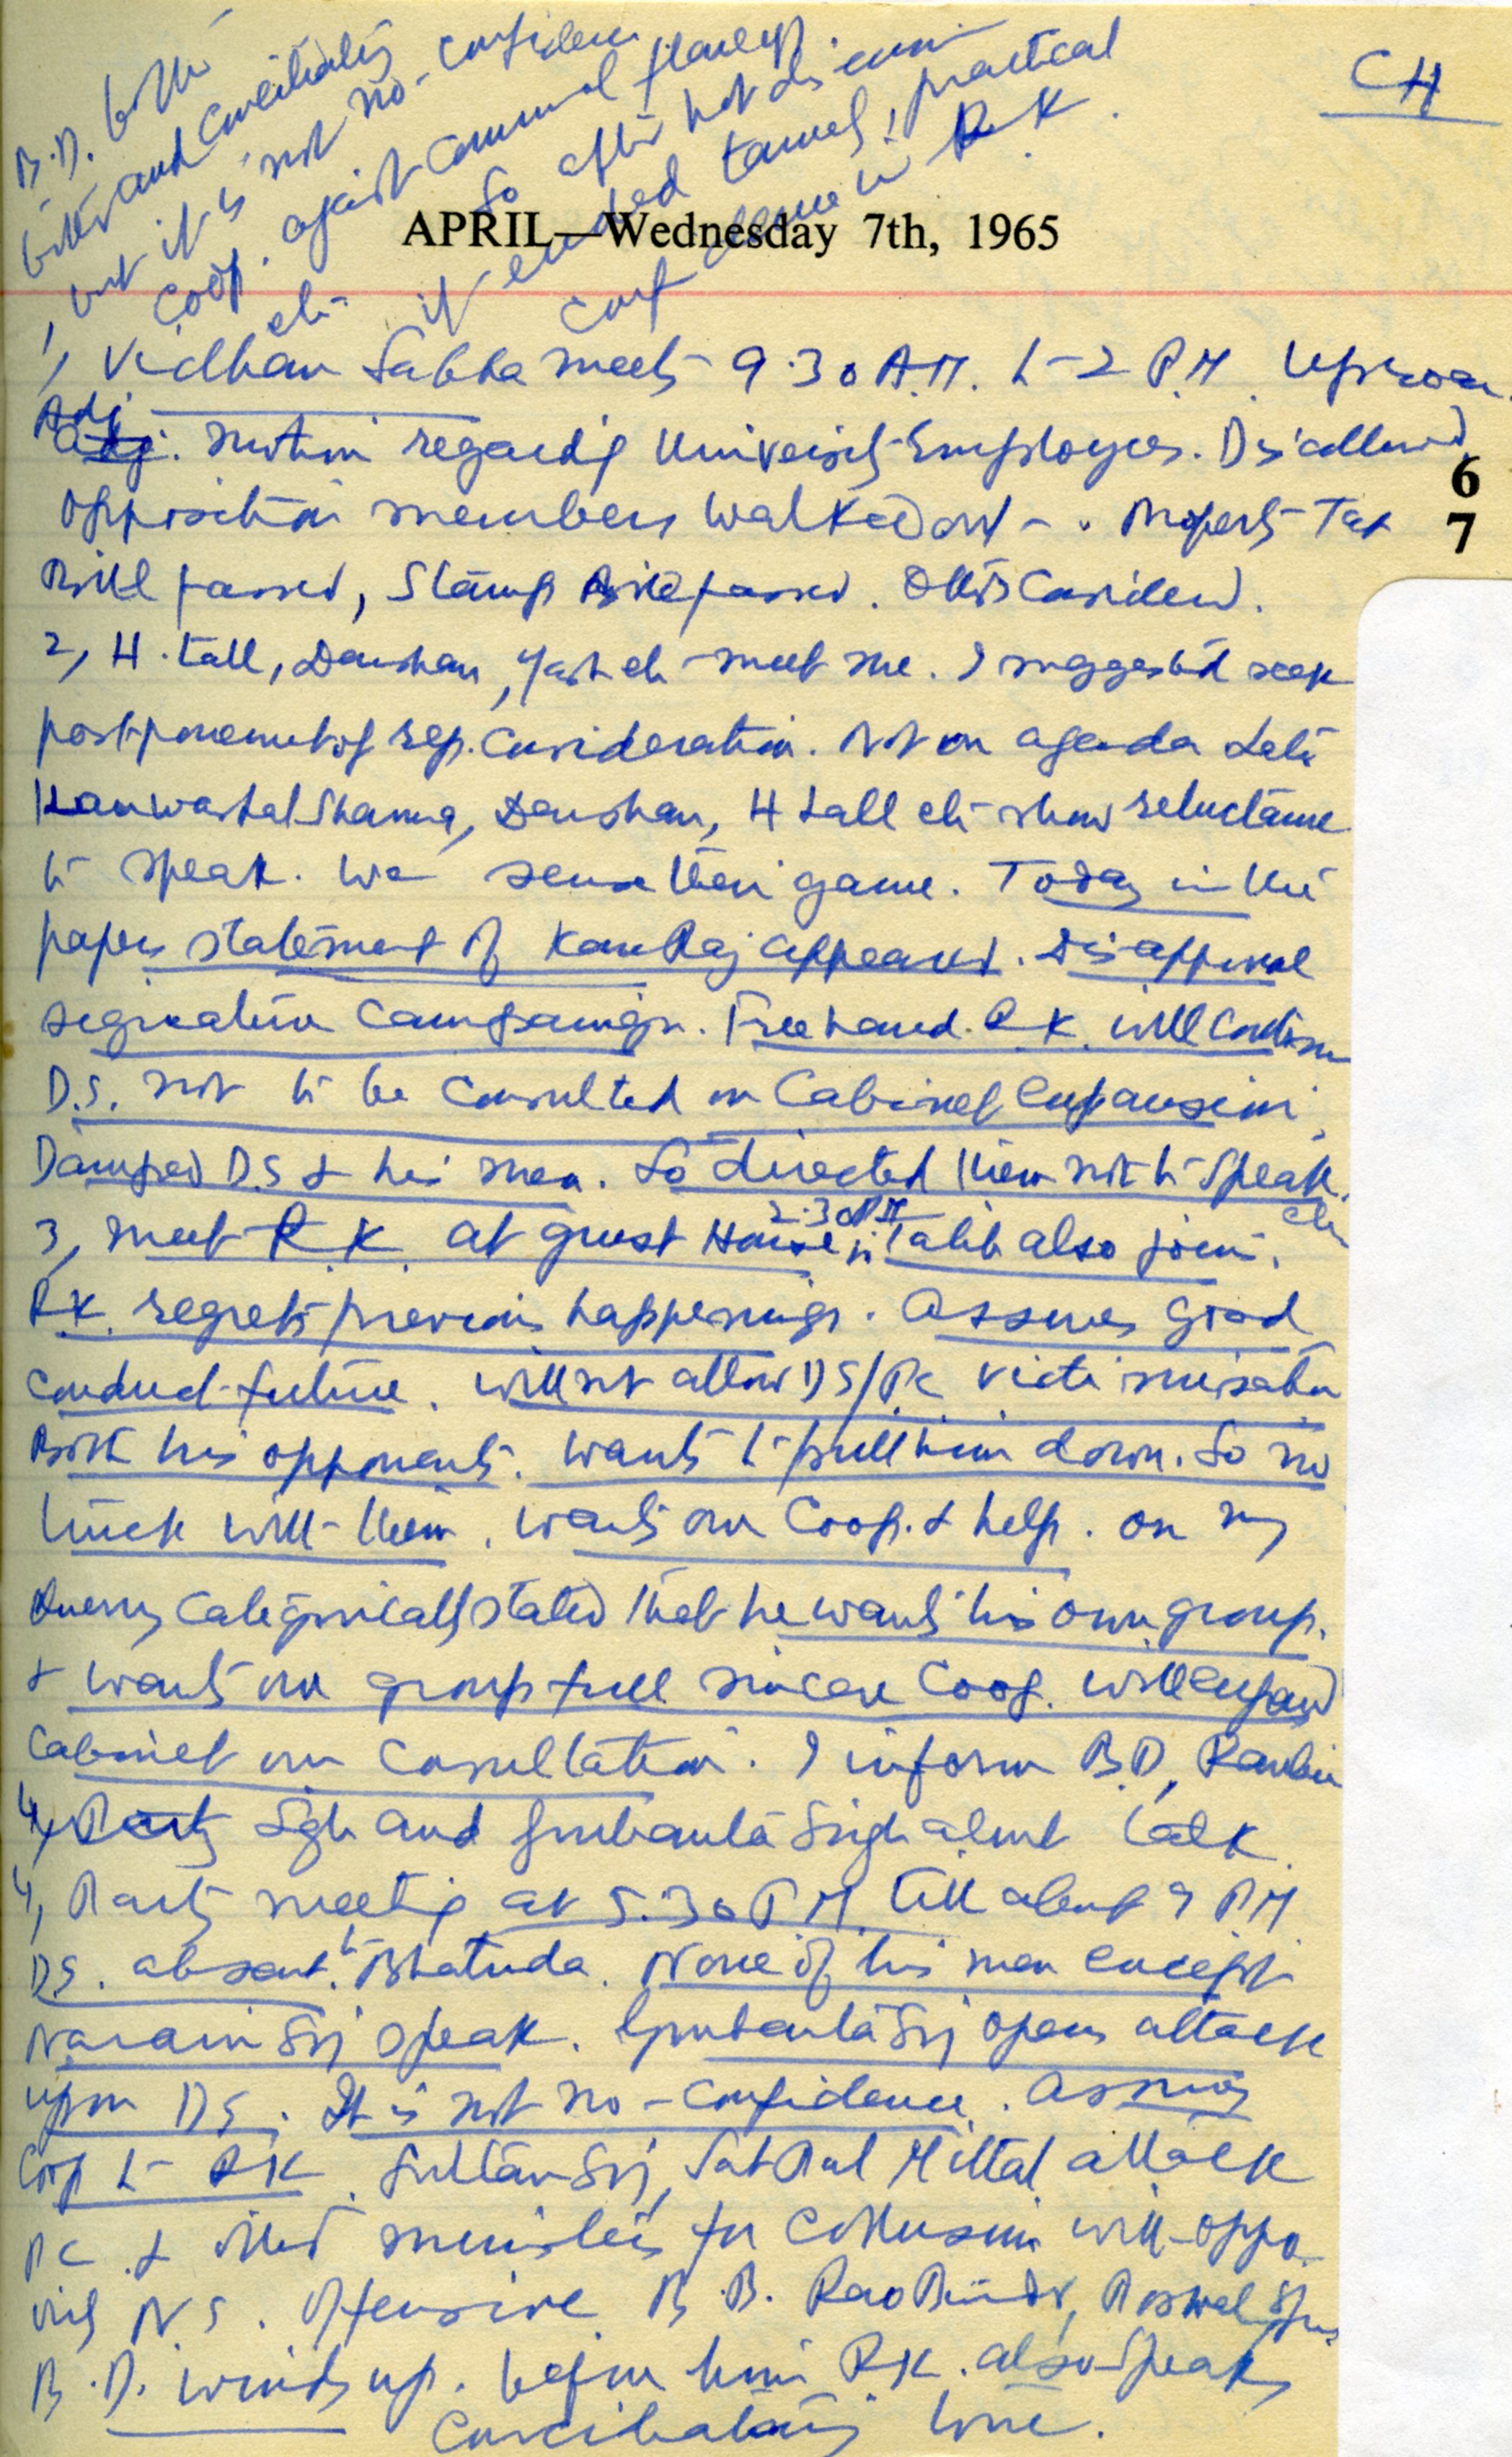 CH
APRIL—Wednesday 7th, 1965
6
7
1, Vidhan Sabha meets 9.30 A.M. to 2 P.M. Uproar.
Adj. motion regarding University Employees. Disallowed
opposition members walked out. Property Tax
Bill passed, Stamp Bill passed. Others Considered.
2, H. Lall, Darshan, Yash etc meet me. I suggested seek
postponement of rep. Consideration. Not on agenda
Kanwar Lal Sharma, Darshan, H Lall etc show reluctance
to speak. We sense their game. Today in the
papers statement of KamRaj appeared. Disapproval
signature Campaign. Free hand. R.K. will continue
D.S. not to be Consulted on Cabinet Expansion.
Damped D.S & his men. So directed them not to speak.
3, meet R.K. at guest House 2.30 PM Talib also joins. etc
R.K. regrets previous happenings. Assures good
conduct future. Will not allow DS/PC victimisation
Both his opponents. Wants to pull him down. So no
truck with them. Wants our Coop. & help. On my
Query Categorically stated that he wants his own group.
& wants our group full sincere Coop. Will expand
Cabinet our Consultation. I inform B.D, Ranbir
Sgh and Gurbanta Singh about talk.
4, Party meeting at 5.30 P.M. till about 9 P.M
DS. absent. to Bhatinda. None of his men except
Narain Sgj speak. Gurbanta Sgj opens attack
upon DS. It is not no-Confidence. Assures
Coop to RK. Sultan Sgj, Sat Pal Mittal attack
PC & other ministers for Collusion with oppo-
B.B. Rao Birendr,
B.D. winds up. before him R.K. also speaks
Conciliatory tone.
B.D. both
bitter and conciliatory
but it is not no-confidence
coop. against communal flareup.
etc So after hot discussion
it ended tamely, practical
confidence in R.K.